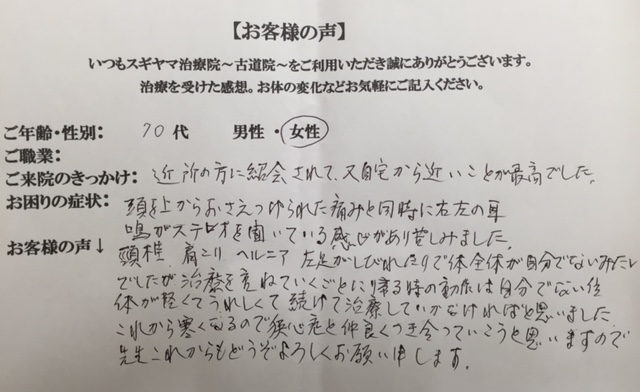 【お客様の声】
いつもスギヤマ治療院～古道院～をご利用いただき誠にありがとうございます。
治療を受けた感想。お体の変化などお気軽にご記入ください。
ご年齢・性別: 70代 男性・女性
ご職業:
ご来院のきっかけ: 近所の方に紹会されて、又自宅から近いことが最高でした。
お困りの症状: 頭を上からおさえつけられた痛みと同時に右左の耳
鳴がステロオを聞いている感じがあり苦しみました。
お客様の声↓ 頸椎 肩こり ヘルニア 左足がしびれたりで体全体が自分でないみたい
でしたが治療を重ねていくごとに帰る時の動作は自分でない位
体が軽くてうれしくて続けて治療していかなければと思いました
これから寒くなるので狭心症と仲良くつき合っていこうと思いますので
先生これからもどうぞよろしくお願い申します。